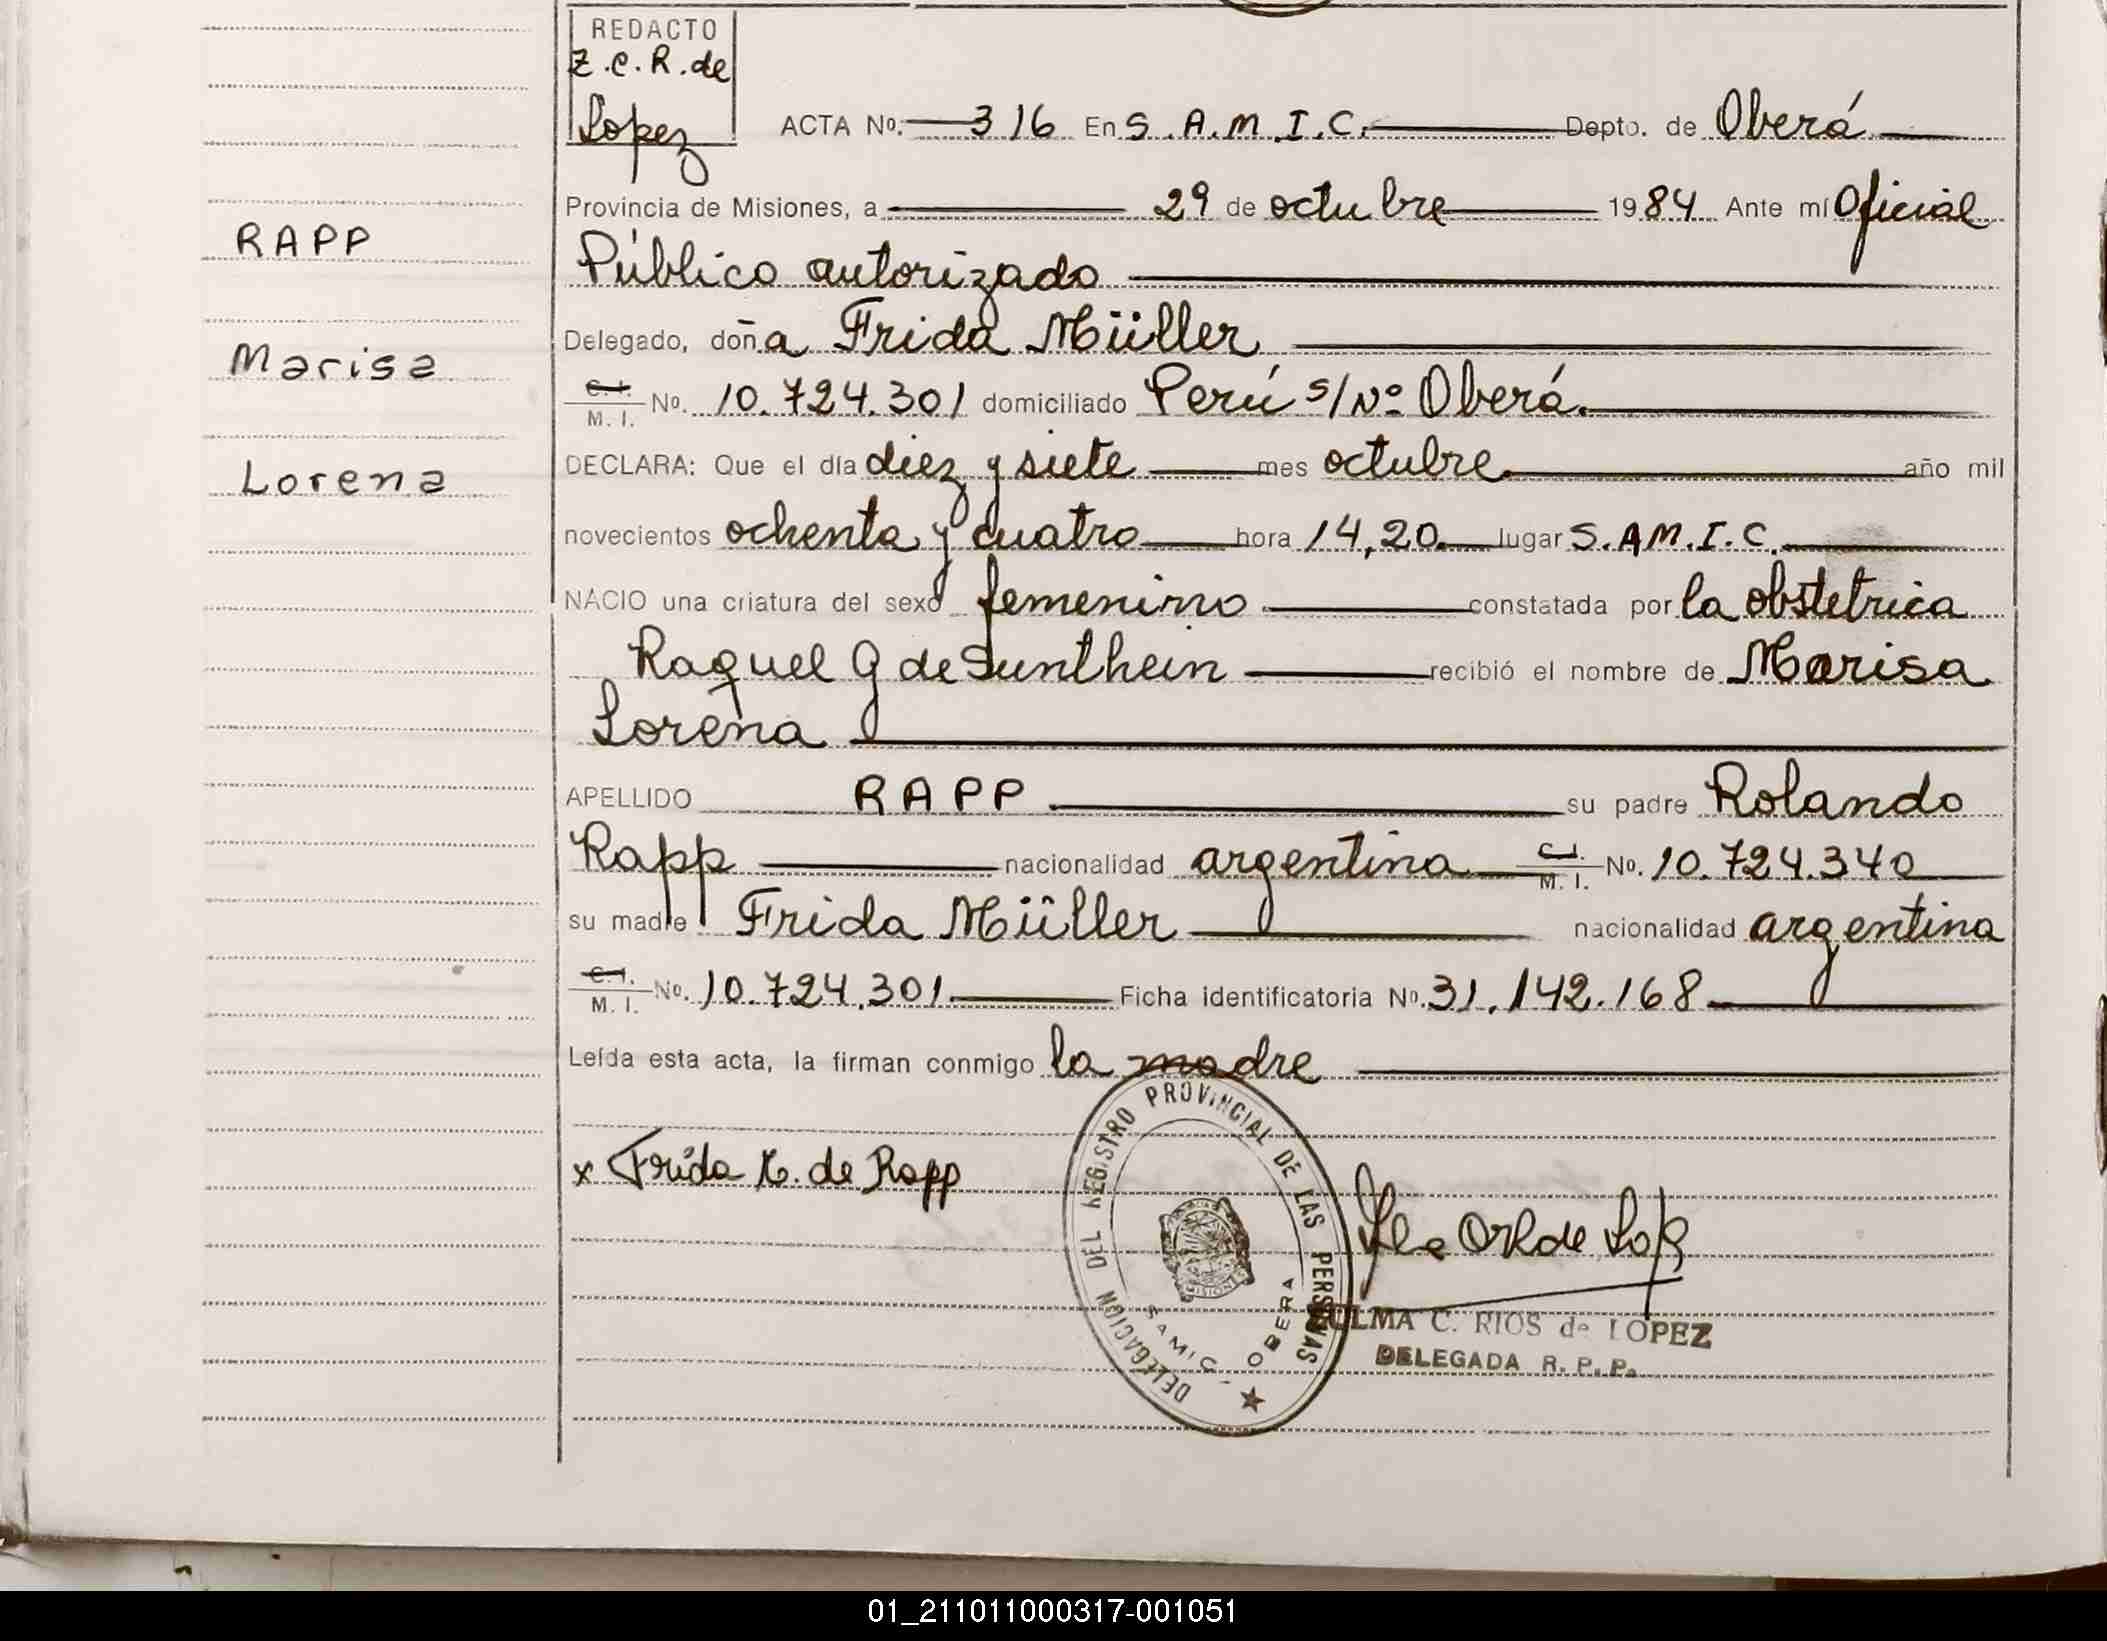 REDACTO
Z.C.R. de
Lopez
ACTA Nº. 316 En S.A.M.I.C. Depto. de Oberá
Provincia de Misiones, a 29 de octubre 1984 Ante mí Oficial
Público autorizado
Delegado, doña Frida Müller
C.I. M.I. No. 10.724.301 domiciliado Perú s/Nº Oberá.
DECLARA: Que el día diez y siete mes octubre año mil
novecientos ochenta y cuatro hora 14,20 lugar S.AM.I.C.
NACIO una criatura del sexo femenino constatada por la obstetrica
Raquel G de Sunthein recibió el nombre de Marisa
Lorena
APELLIDO RAPP su padre Rolando
Rapp nacionalidad argentina C.I. M.I. No. 10.724.340
su madre Frida Müller nacionalidad argentina
C.I. M.I. No. 10.724.301 Ficha identificatoria Nº. 31.142.168
Leída esta acta, la firman conmigo la madre
x Frida M. de Rapp
RAPP
Marisa
Lorena
DELEGACION DEL REGISTRO PROVINCIAL DE LAS PERSONAS
SAMIC - OBERA
MISIONES
ZULMA C. RIOS de LOPEZ
DELEGADA R.P.P.
01_211011000317-001051